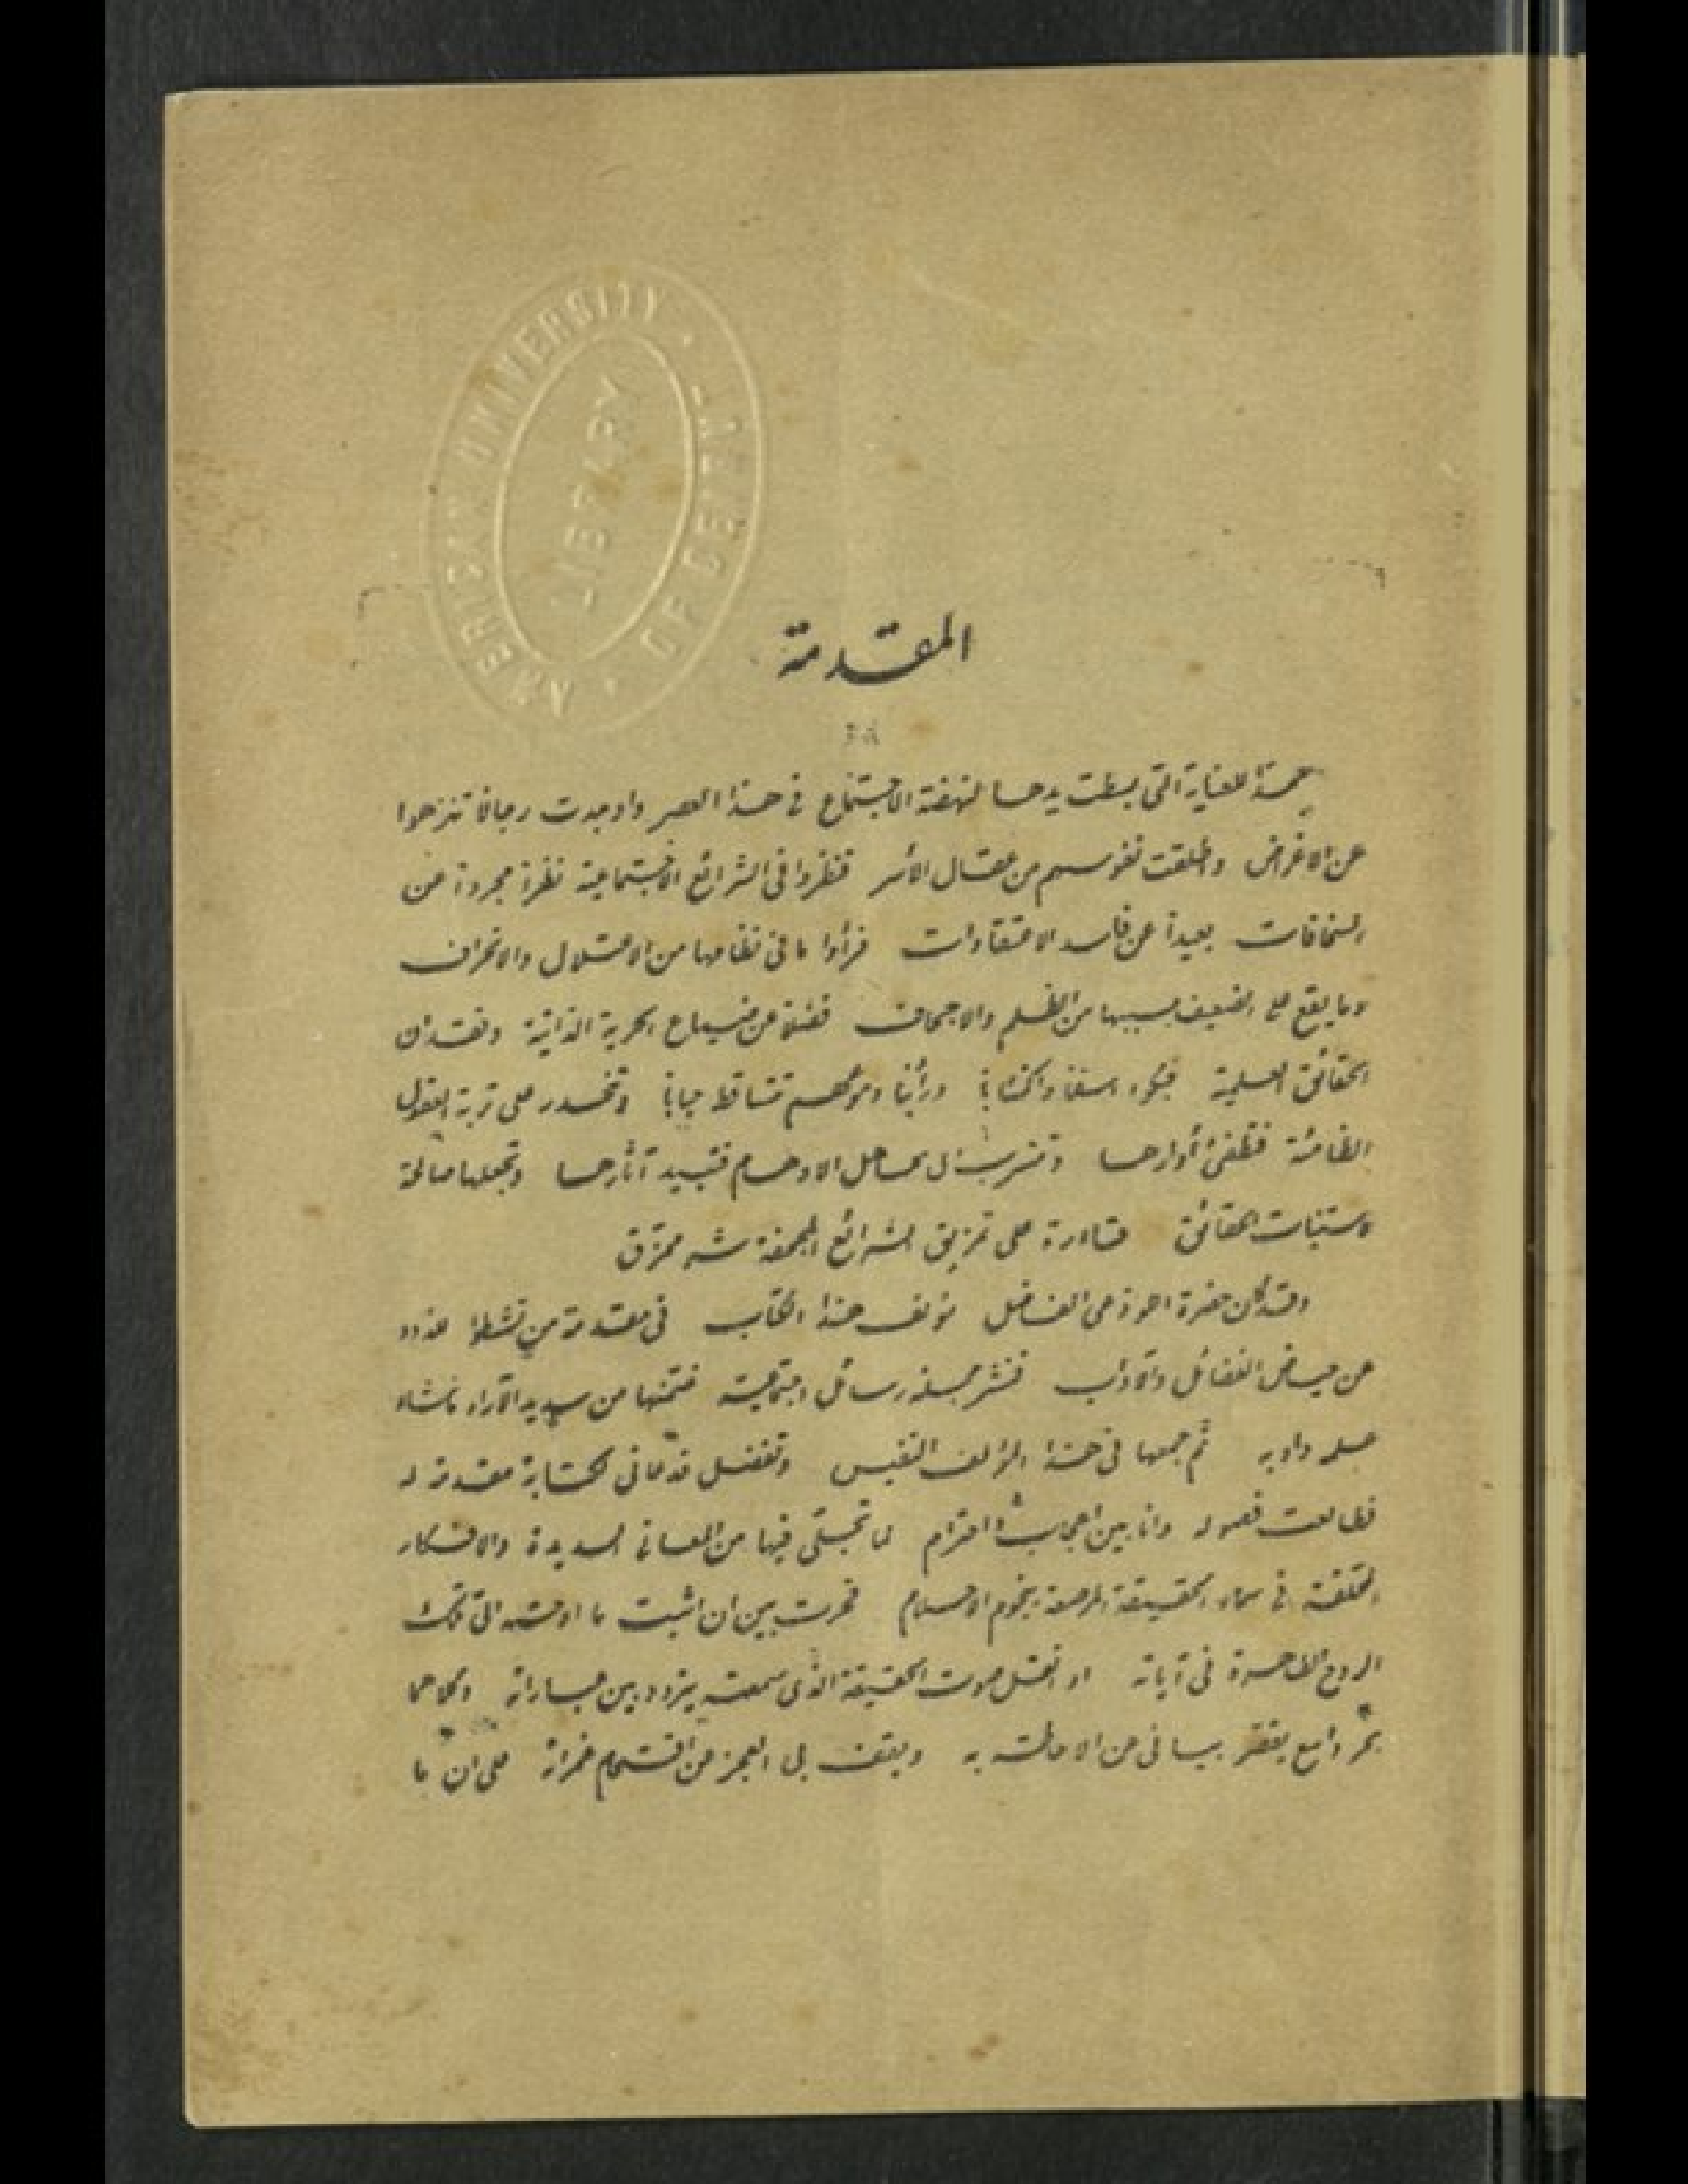 AMERICAN UNIVERSITY OF BEIRUT
LIBRARY
المقدمة
حمداً للعناية التى بسطت يدها لنهضة الاجتماع فى هذا العصر واوجدت رجالاً تنزهوا
عن الاغراض واطلقت نفوسهم من عقال الأسر فنظروا فى الشرائع الاجتماعية نظرة مجردة عن
السخافات بعيداً عن فاسد الاعتقادات فرأوا ما فى نظامها من الاعتلال والانحراف
وما يقع على الضعيف بسببها من الظلم والاجحاف فضلاً عن ضياع الحرية الذاتية وفقدان
الحقائق العلمية فبكوا اسفاً واكتئاباً ورأينا دموعهم تتساقط تباعاً وتنحدر على تربة العقول
الظامئة فتطفئ أوارها وتتسرب الى مجاهل الاوهام فتبيد آثارها وتجعلها صالحة
لاستنبات الحقائق قادرة على تمزيق الشرائع المجحفة شر ممزق
وقد كان حضرة الفاضل مؤلف هذا الكتاب فى مقدمة من نشطوا للذود
عن حياض الفضائل والآداب فنشر جملة رسائل اجتماعية ضمّنها من سديد الآراء ما شاء
علمه وادبه ثم جمعها فى هذا المؤلف النفيس وتفضل فدعانى لكتابة مقدمة له
فطالعت فصوله وانا بين اعجاب واحترام لما تجلّى فيها من المعانى السديدة والافكار
المحلقة فى سماء الحقيقة المرصعة بنجوم الاحلام فحرت بين ان اثبت ما اوحته الىّ تلك
الروح الطاهرة فى آياته او انقل صوت الحقيقة الذى سمعته يتردد بين عباراته وكلاهما
بحر واسع يقصر بيانى عن الاحاطة به ويقف بى العجز عن اقتحام غمراته على ان ما